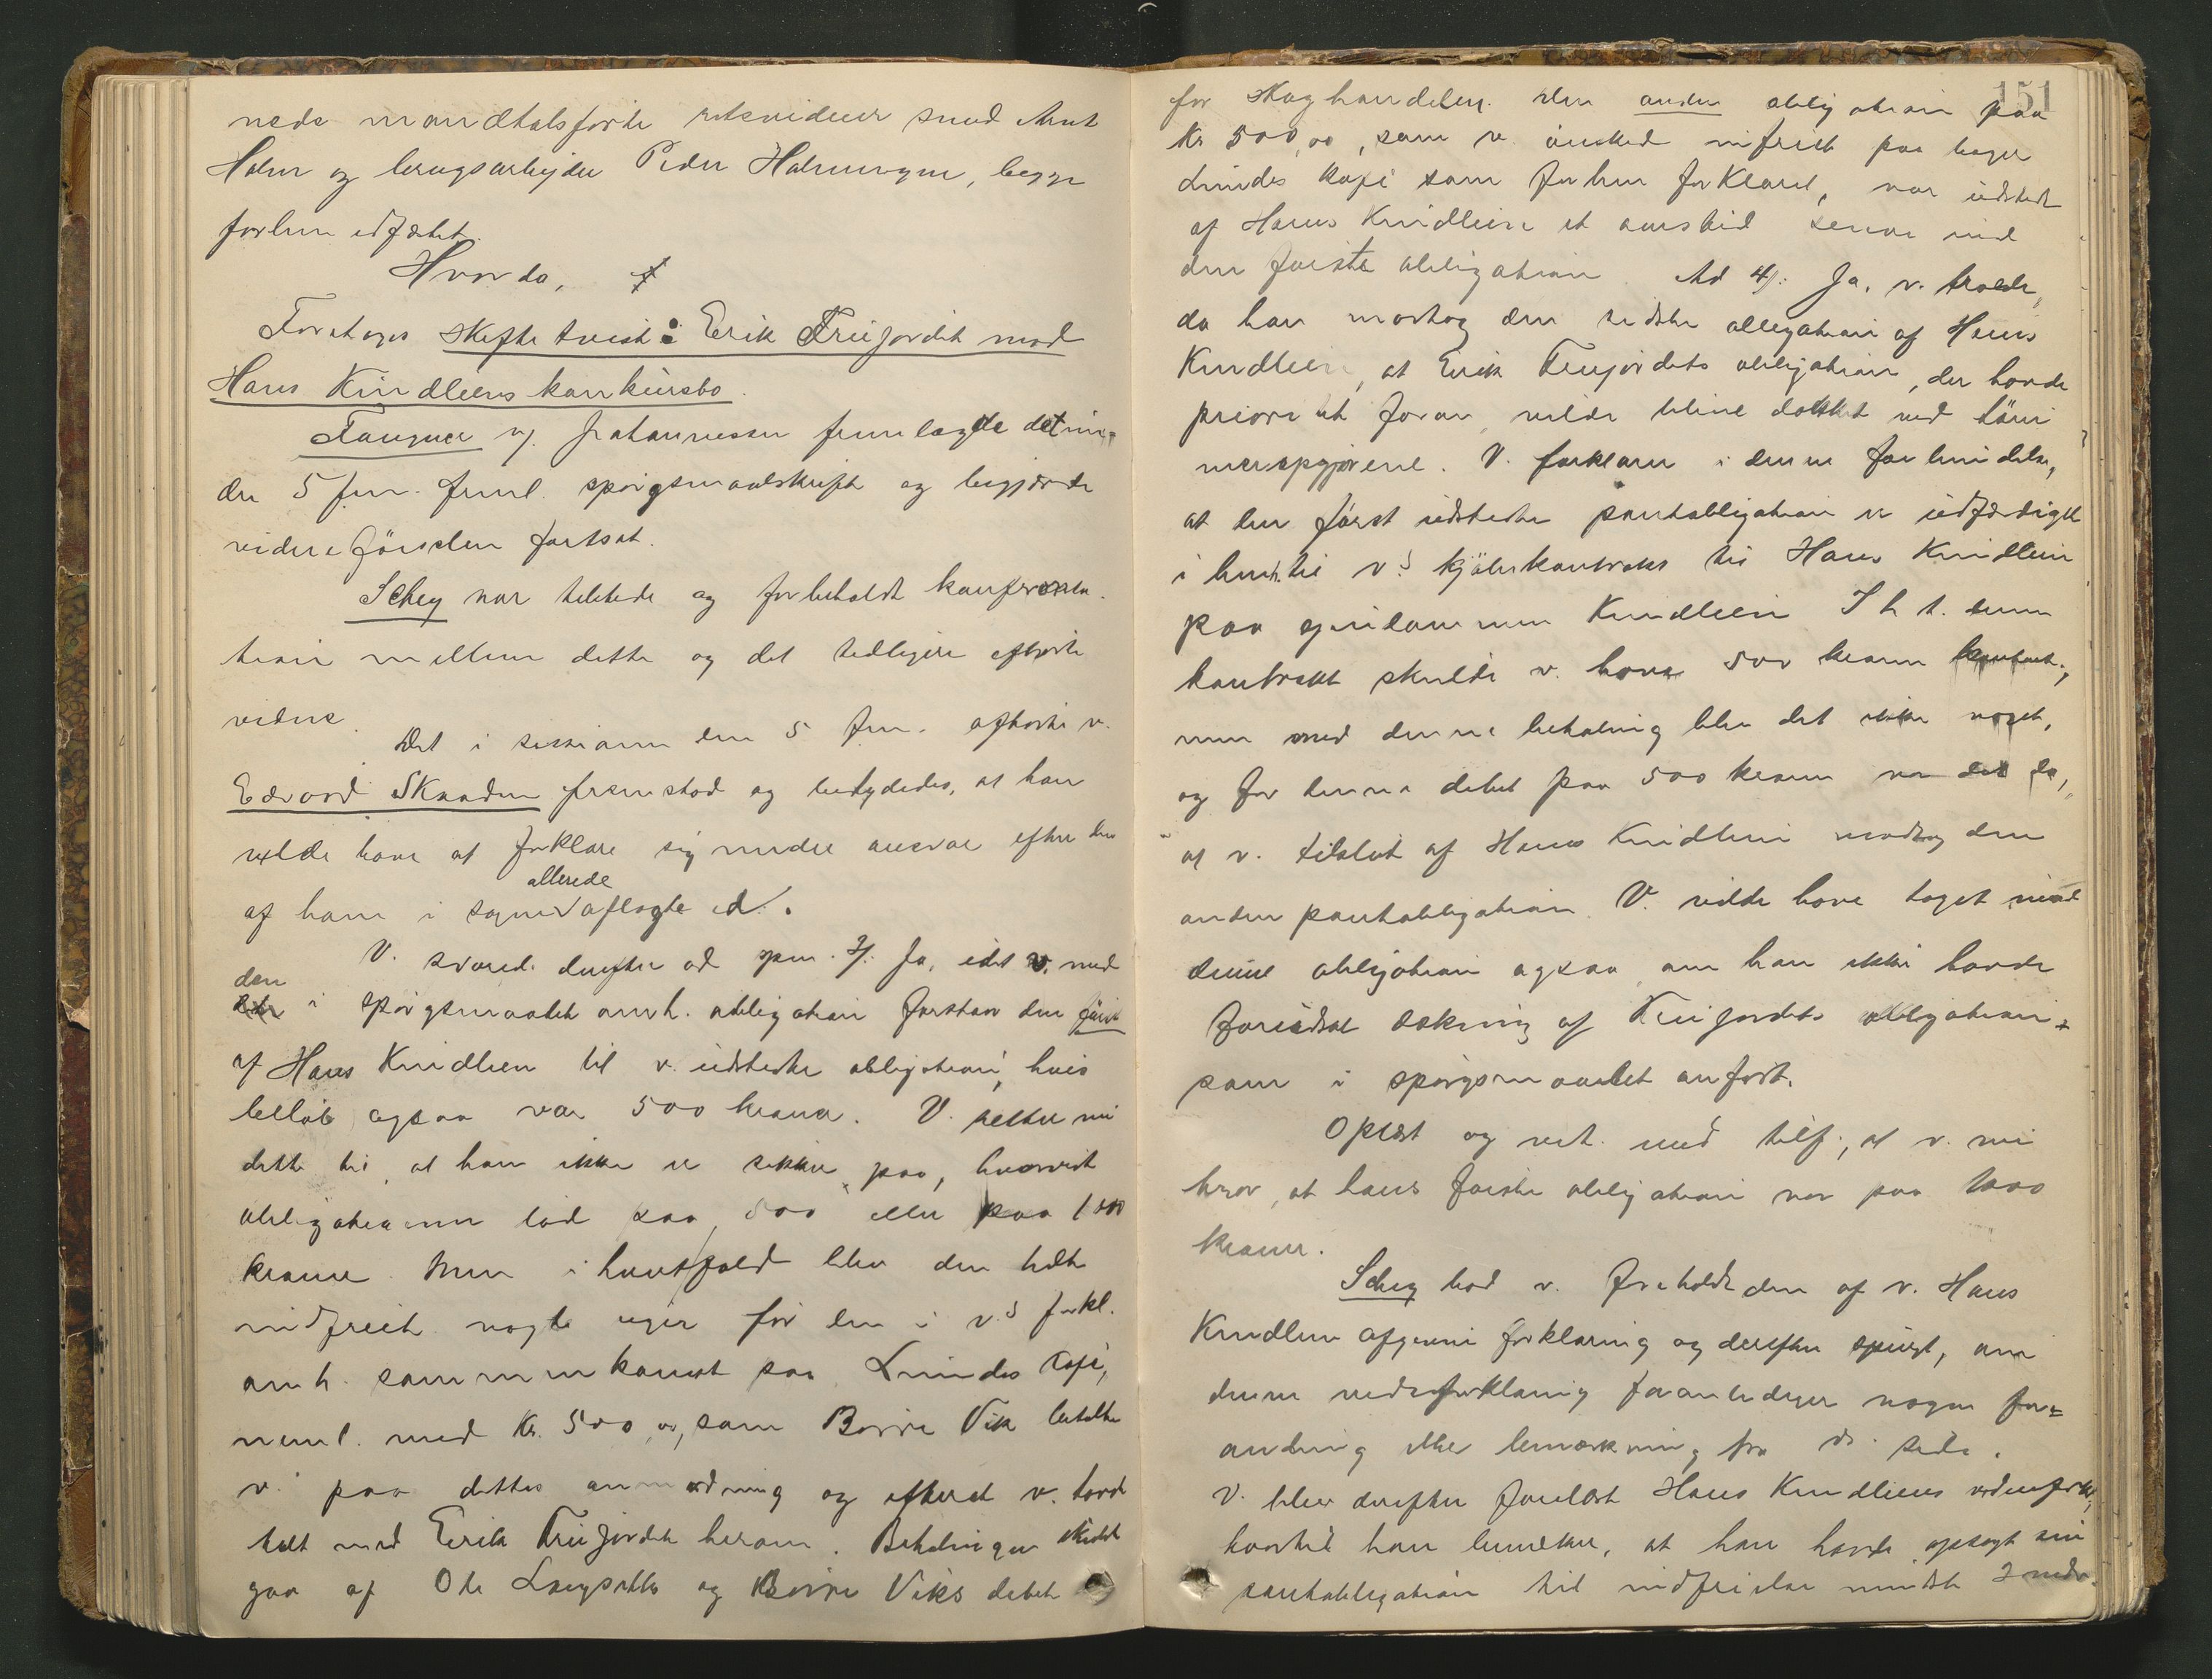 neds mandtalsførte retsvidner smed Arnt
Holm og brugsarbeider Peder Halmøygen, begge
forhen edfæstet.
Hvorda,
Foretoges skiftetvist: Erik Freifjordet mod
Hans Kindleiens konkursbo.
Faugner v/ Johannessen fremlagde det un-
der 5 jan. freml. spørgsmaalskrift og begjærede
vidneførselen fortsat.
Schey var tilstede og forbeholdt konfronta-
tion mellem dette og det tidligere afhørte
vidne.
Det i sessionen den 5 jan. afhørte v.
Edvard Skaaden fremstod og betydedes, at han
vilde have at forklare sig under ansvar efter den
allerede
af ham i sagen aflagte ed.
V. svared. derefter ad spm. 3/: Ja, idet v. med
den
i spørgsmaalet omh. obligation forstaar den først
af Hans Kindlien til v. udstedte obligation, hvis
beløb ogsaa var 500 kroner. V. retter nu
dette til, at han ikke er sikker paa, hvorvidt
obligationen lød paa 500 eller paa 1000
kroner. Men i hvert fald blev den helt
indfriet nogle uger før den i v.s forkl.
omh. sammenkomst paa Lindes kafé,
neml. med kr. 500,00, som Børre Vik betalte
v. paa dettes anmodning og efterat v. havde
talt med Erik Freifjordet herom. Betalingen skulde
gaa af Ole Langsæths og Børre Viks debet
151
for skoghandelen. Den anden obligation paa
kr 500,00, som v. ønsked indfriet paa
Lindes kafé som forhen forklaret, var udstedt
af Hans Kindleien et aarstid senere end
den første obligation. Ad 4/: Ja, v. troede,
da han modtog den sidste obligation af Hans
Kindleien, at Erik Freifjordets obligation, der havde
prioritet foran, vilde blive dækket ved tøm-
meropgjørene. V. forklarer i denne forbindelse,
at den først udstedte pantobligation er udfærdiget
i henh. til v.s kjøbekontrakt til Hans Kindleien
paa eiendommen Kindleien. I h. t. denne
kontrakt skulde v. have 500 kroner kontant,
men med denne betaling blev det ikke noget,
og for denne debet paa 500 kroner var det da,
at v. tilslut af Hans Kindleien modtog den
anden pantobligation. V. vilde have taget imod
denne obligation ogsaa om han ikke havde
forudsat dækning af Freifjordets obligation
som i spørgsmaalet anført.
Oplæst og vedt. med tilf., at v. nu
tror, at hans første obligation var paa 1000
kroner.
Schey bad v. foreholdt den af v. Hans
Kindlien afgivne forklaring og derefter spurgt, om
denne vidneforklaring foranlediger nogen for-
andring eller bemærkning fra v.s side.
V. blev derefter forelæst Hans Kindliens vidneforkl.,
hvortil han bemerker, at han havde opsagt sin
pantobligation til indfrielse mindst 3 mdr.